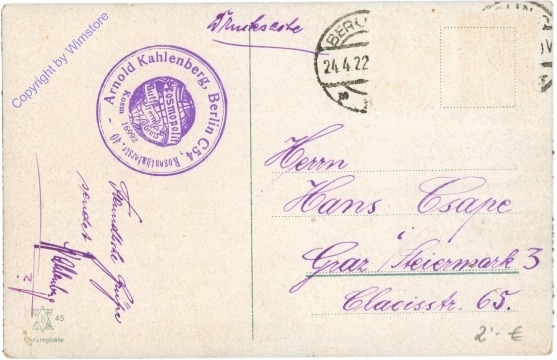 Copyright by Wimstore
Drucksache
BERLIN
24.4.22
Arnold Kahlenberg, Berlin C54, Rosenthalerstr. 40 -
Kosmopolit
Kosm
16992
Herrn
Hans Csape
i/
Graz/Steiermark 3
Glacisstr. 65.
Freundliche Grüße
sendet
Kahlenberg
45
Chromphoto
2'- €